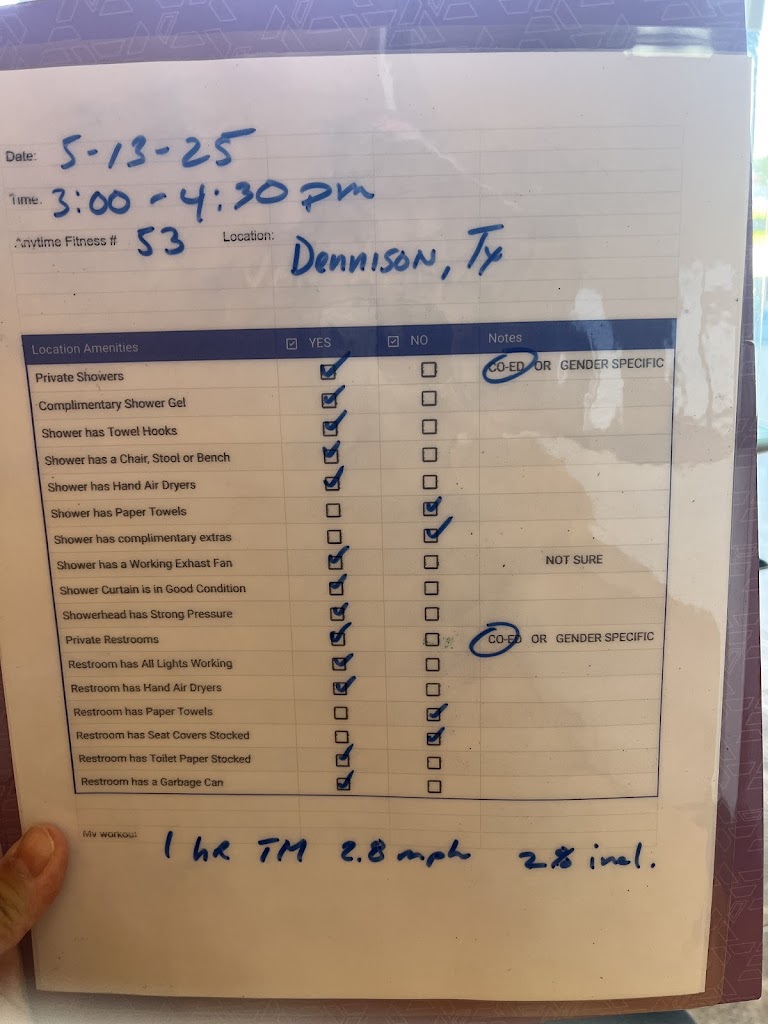 Date: 5-13-25
Time. 3:00 - 4:30 pm
Anytime Fitness # 53 Location: Dennison, Tx
Location Amenities ☑ YES ☑ NO Notes
Private Showers ☑ ☐ CO-ED OR GENDER SPECIFIC
Complimentary Shower Gel ☑ ☐
Shower has Towel Hooks ☑ ☐
Shower has a Chair, Stool or Bench ☑ ☐
Shower has Hand Air Dryers ☑ ☐
Shower has Paper Towels ☐ ☑
Shower has complimentary extras ☐ ☑
Shower has a Working Exhast Fan ☑ ☐ NOT SURE
Shower Curtain is in Good Condition ☑ ☐
Showerhead has Strong Pressure ☑ ☐
Private Restrooms ☑ ☐ CO-ED OR GENDER SPECIFIC
Restroom has All Lights Working ☑ ☐
Restroom has Hand Air Dryers ☑ ☐
Restroom has Paper Towels ☐ ☑
Restroom has Seat Covers Stocked ☐ ☑
Restroom has Toilet Paper Stocked ☑ ☐
Restroom has a Garbage Can ☑ ☐
My workout 1 hR TM 2.8 mph 2% incl.